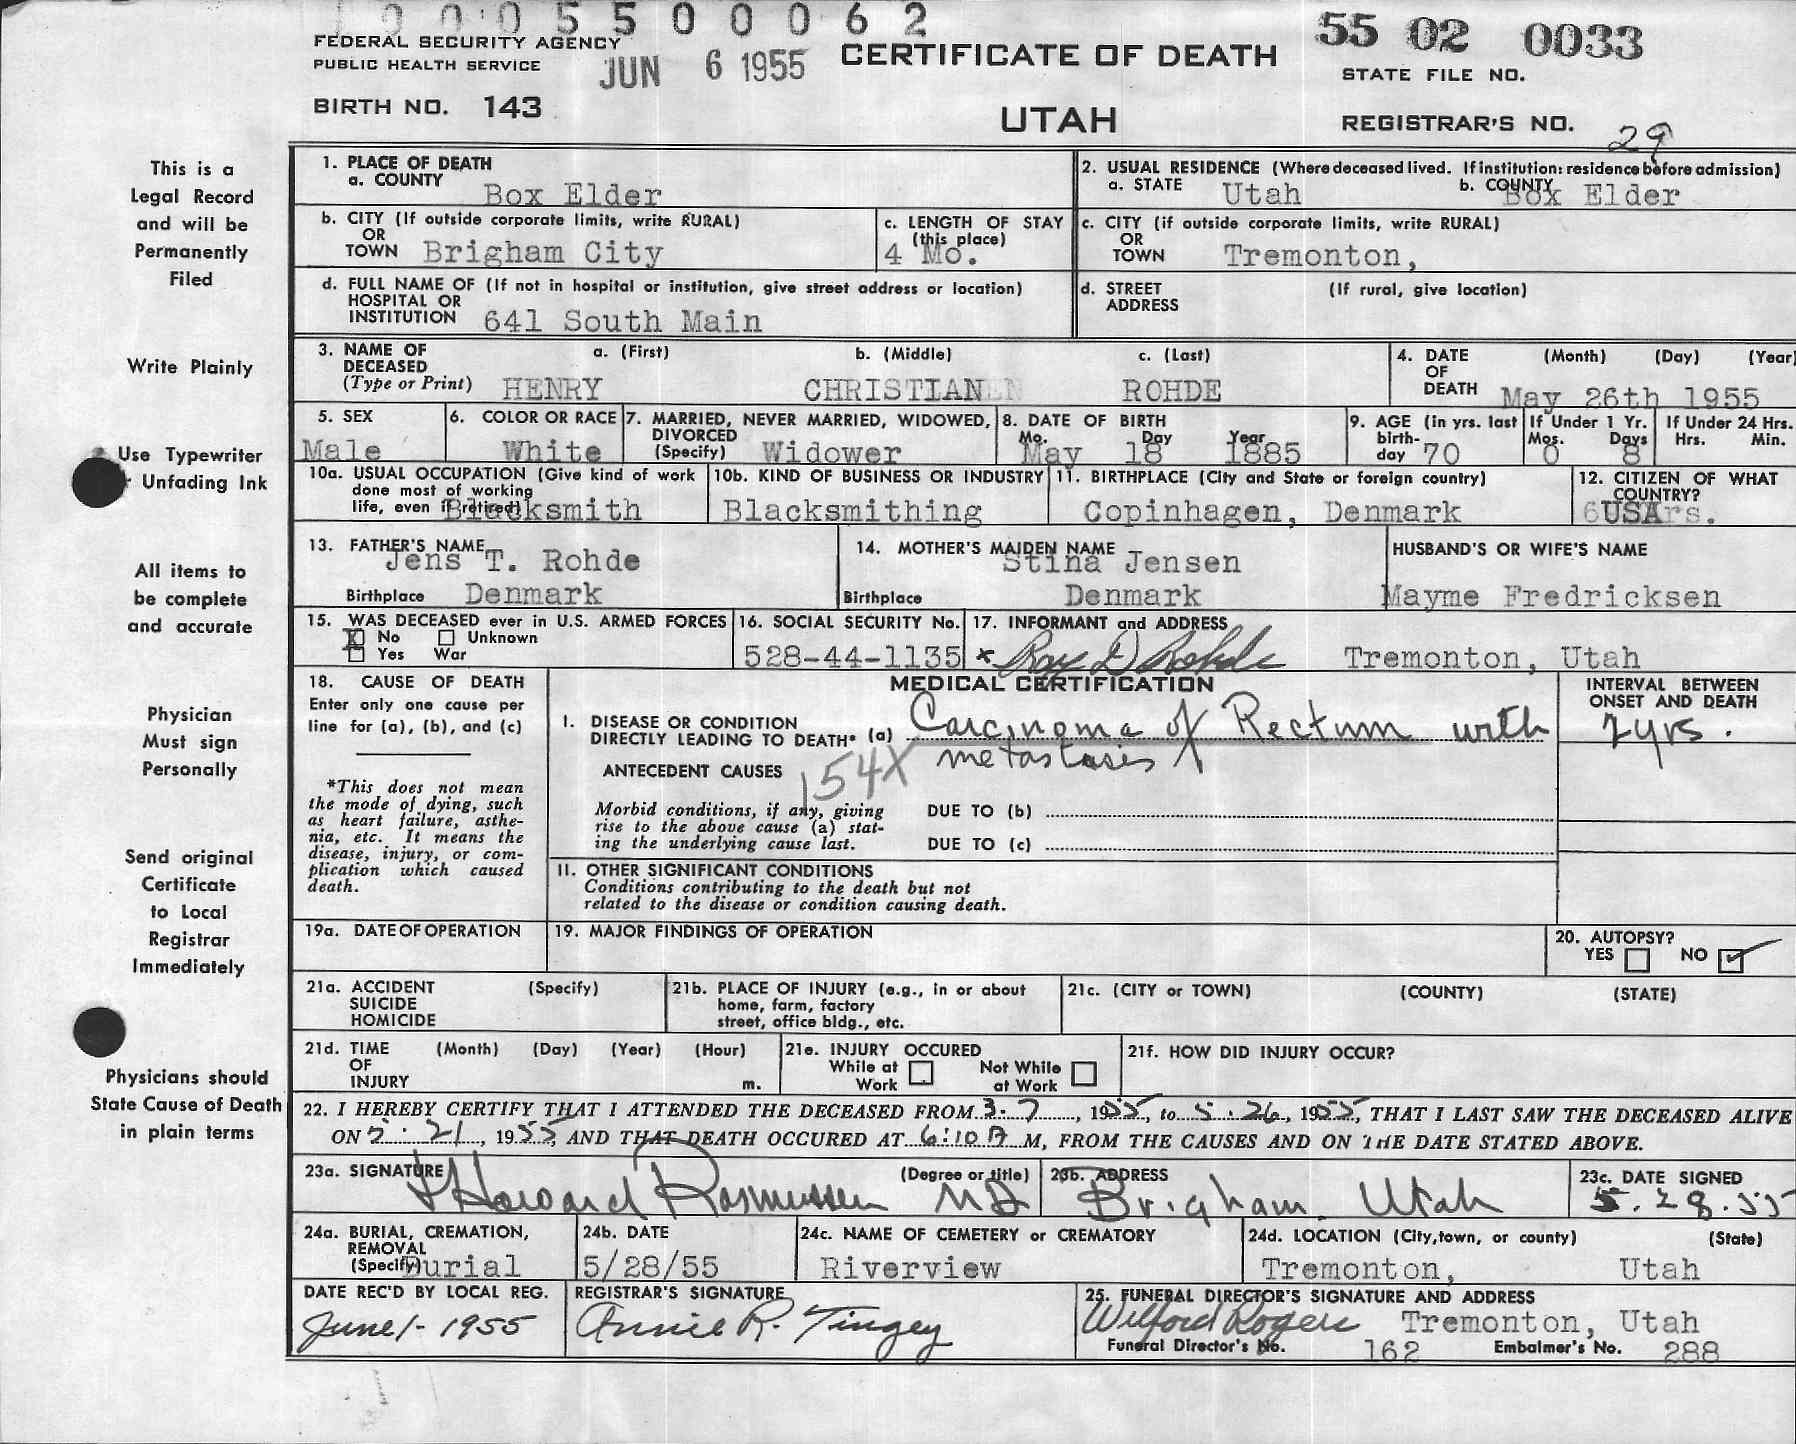 10005500062
FEDERAL SECURITY AGENCY
PUBLIC HEALTH SERVICE
JUN 6 1955
CERTIFICATE OF DEATH
55 02 0033
STATE FILE NO.
BIRTH NO. 143
UTAH
REGISTRAR'S NO. 29
This is a
Legal Record
and will be
Permanently
Filed
Write Plainly
Use Typewriter
Unfading Ink
All items to
be complete
and accurate
Physician
Must sign
Personally
Send original
Certificate
to Local
Registrar
Immediately
Physicians should
State Cause of Death
in plain terms
1. PLACE OF DEATH
a. COUNTY Box Elder
2. USUAL RESIDENCE (Where deceased lived. If institution: residence before admission)
a. STATE Utah b. COUNTY Box Elder
b. CITY (If outside corporate limits, write RURAL)
OR
TOWN Brigham City
c. LENGTH OF STAY
(this place)
4 Mo.
c. CITY (if outside corporate limits, write RURAL)
OR
TOWN Tremonton,
d. FULL NAME OF (If not in hospital or institution, give street address or location)
HOSPITAL OR
INSTITUTION 641 South Main
d. STREET (If rural, give location)
ADDRESS
3. NAME OF
DECEASED
(Type or Print)
a. (First) b. (Middle) c. (Last)
HENRY CHRISTIAN ROHDE
4. DATE (Month) (Day) (Year)
OF
DEATH May 26th 1955
5. SEX
Male
6. COLOR OR RACE
White
7. MARRIED, NEVER MARRIED, WIDOWED,
DIVORCED
(Specify) Widower
8. DATE OF BIRTH
Mo. Day Year
May 18 1885
9. AGE (in yrs. last
birth-
day 70
If Under 1 Yr.
Mos. Days
0 8
If Under 24 Hrs.
Hrs. Min.
10a. USUAL OCCUPATION (Give kind of work
done most of working
life, even if retired) Blacksmith
10b. KIND OF BUSINESS OR INDUSTRY
Blacksmithing
11. BIRTHPLACE (City and State or foreign country)
Copinhagen, Denmark
12. CITIZEN OF WHAT
COUNTRY?
USA
13. FATHER'S NAME
Jens T. Rohde
Birthplace Denmark
14. MOTHER'S MAIDEN NAME
Stina Jensen
Birthplace Denmark
HUSBAND'S OR WIFE'S NAME
Mayme Fredricksen
15. WAS DECEASED ever in U.S. ARMED FORCES
X No Unknown
Yes War
16. SOCIAL SECURITY No.
528-44-1135
17. INFORMANT and ADDRESS
x Ray D Rohde Tremonton, Utah
18. CAUSE OF DEATH
Enter only one cause per
line for (a), (b), and (c)
*This does not mean
the mode of dying, such
as heart failure, asthe-
nia, etc. It means the
disease, injury, or com-
plication which caused
death.
MEDICAL CERTIFICATION
I. DISEASE OR CONDITION
DIRECTLY LEADING TO DEATH* (a) Carcinoma of Rectum with
metastases
ANTECEDENT CAUSES
154X
Morbid conditions, if any, giving
rise to the above cause (a) stat-
ing the underlying cause last.
DUE TO (b)
DUE TO (c)
II. OTHER SIGNIFICANT CONDITIONS
Conditions contributing to the death but not
related to the disease or condition causing death.
INTERVAL BETWEEN
ONSET AND DEATH
2 yrs.
19a. DATE OF OPERATION
19. MAJOR FINDINGS OF OPERATION
20. AUTOPSY?
YES NO
21a. ACCIDENT (Specify)
SUICIDE
HOMICIDE
21b. PLACE OF INJURY (e.g., in or about
home, farm, factory
street, office bldg., etc.
21c. (CITY or TOWN) (COUNTY) (STATE)
21d. TIME (Month) (Day) (Year) (Hour)
OF
INJURY m.
21e. INJURY OCCURED
While at Not While
Work at Work
21f. HOW DID INJURY OCCUR?
22. I HEREBY CERTIFY THAT I ATTENDED THE DECEASED FROM 3-7, 1955, to 5.26, 1955, THAT I LAST SAW THE DECEASED ALIVE
ON 5.21, 1955, AND THAT DEATH OCCURED AT 6:10 A M, FROM THE CAUSES AND ON THE DATE STATED ABOVE.
23a. SIGNATURE (Degree or title)
Howard Rasmussen MD
23b. ADDRESS
Brigham, Utah
23c. DATE SIGNED
5.28.55
24a. BURIAL, CREMATION,
REMOVAL
(Specify) Burial
24b. DATE
5/28/55
24c. NAME OF CEMETERY or CREMATORY
Riverview
24d. LOCATION (City, town, or county) (State)
Tremonton, Utah
DATE REC'D BY LOCAL REG.
June 1-1955
REGISTRAR'S SIGNATURE
Annie R. Tingey
25. FUNERAL DIRECTOR'S SIGNATURE AND ADDRESS
Wilford Rogers Tremonton, Utah
Funeral Director's No. 162 Embalmer's No. 288